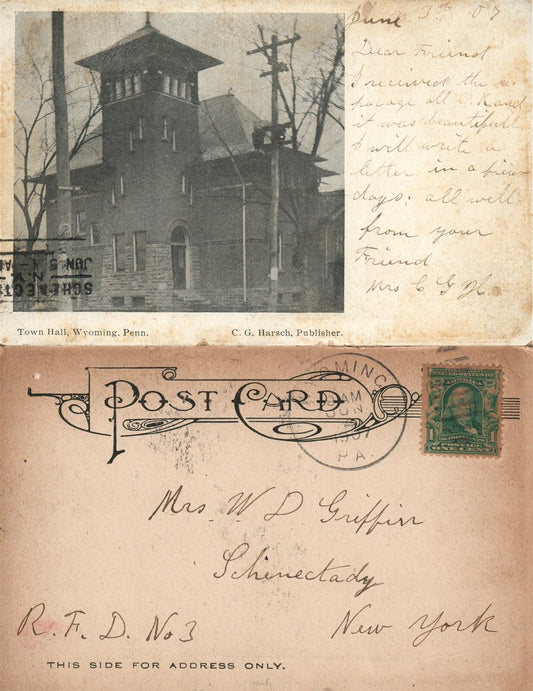 June 3th 07
Dear Friend
I received the
pacage all O.K and
it was beautifull
I will write a
letter in a fiew
days. all well
from your
Friend
Mrs C G H
SCHENECT
JUN 5
N.Y.
Town Hall, Wyoming, Penn.
C. G. Harsch, Publisher.
POST CARD
MING
AM
JUN
1907
PA.
UNITED STATES OF
AMERICA
1
1
POSTAGE
ONE CENT
Mrs. W D Griffin
Schenectady
R. F. D. No 3
New York
THIS SIDE FOR ADDRESS ONLY.